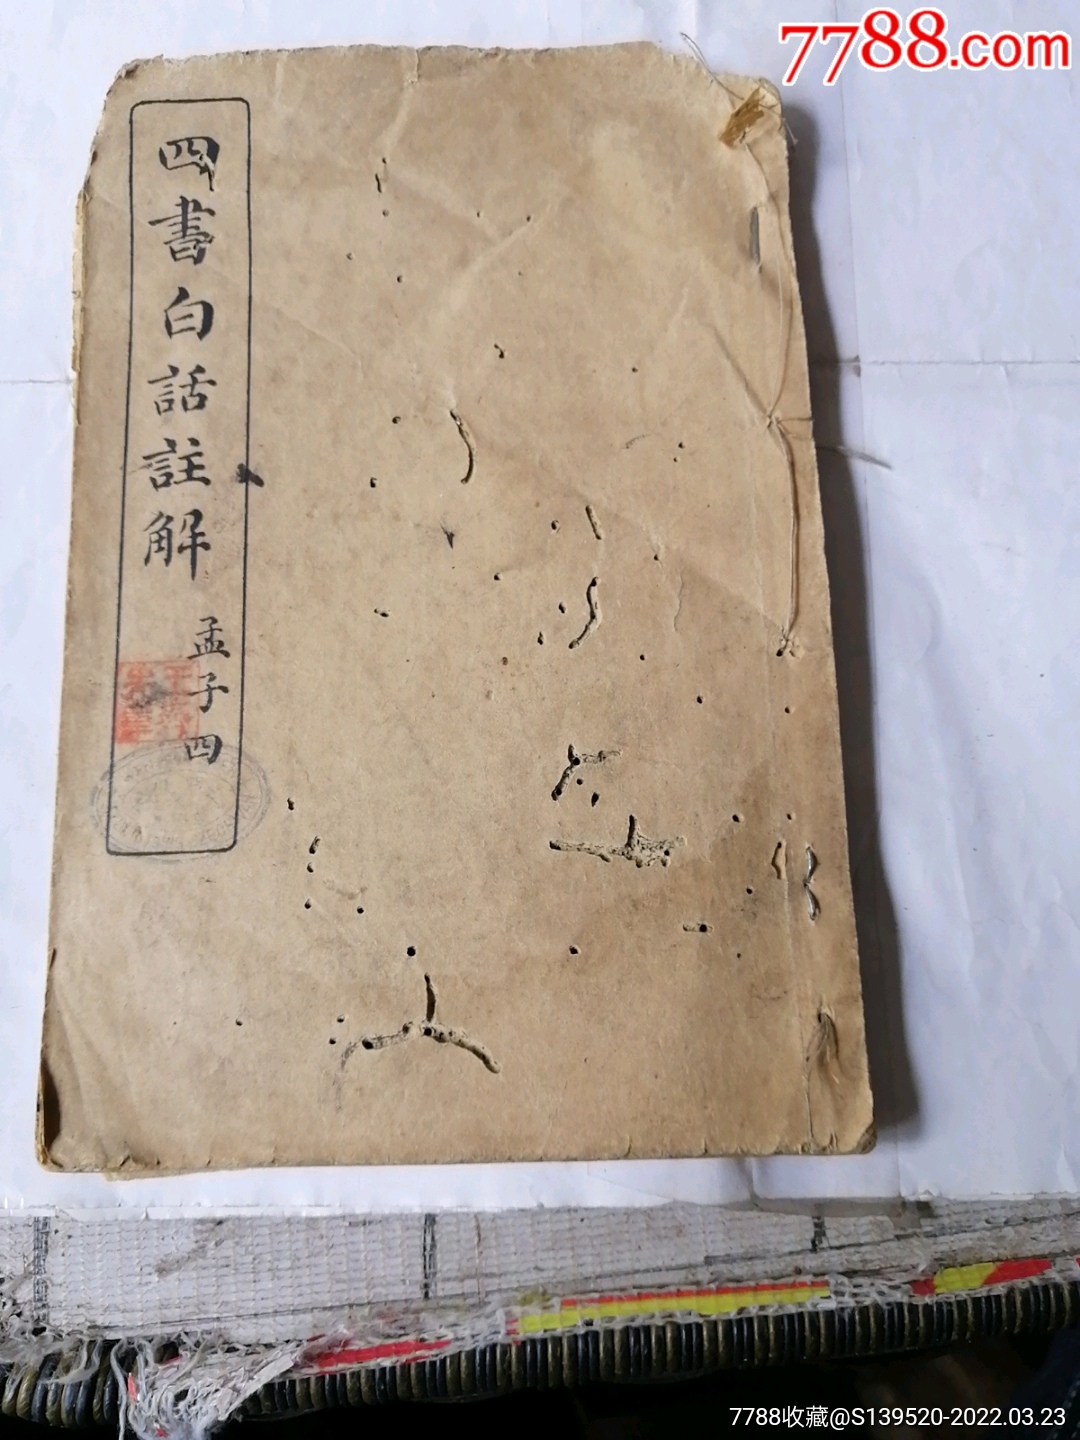 7788.com
四書白話註解
孟子四
7788收藏@S139520-2022.03.23